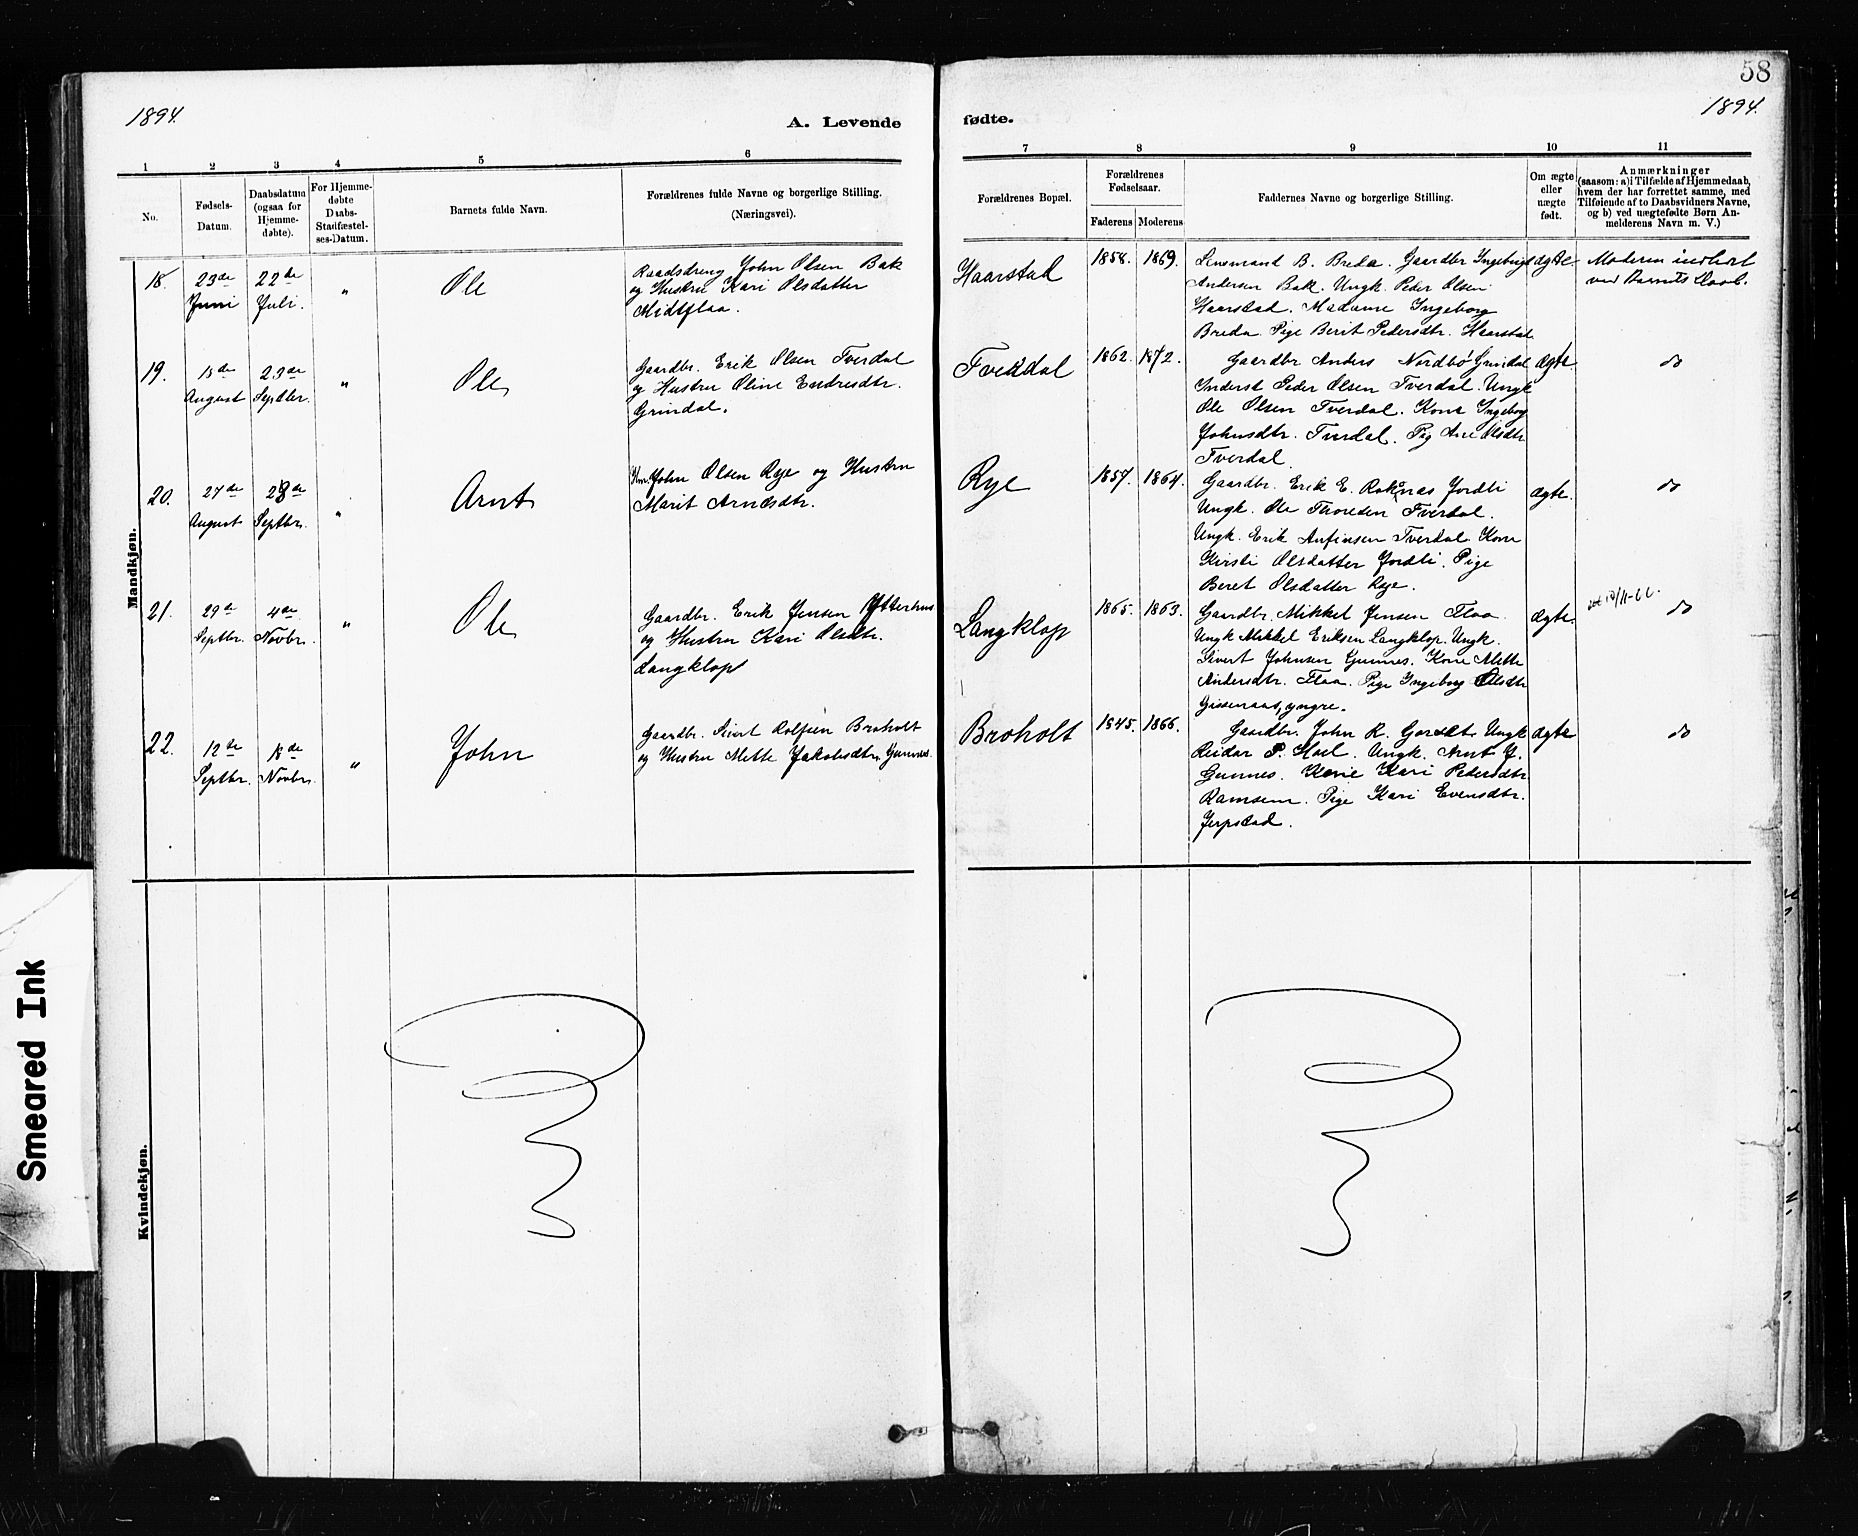 58
1894.
1894.
A. Levende
fødte.
1 2 3 4 5 6
7 8 9 10 11
No.
Fødsels-
Datum.
Daabsdatum
(ogsaa for
Hjemme-
døbte).
For Hjemme-
døbte
Daabs-
Stadfæstel-
ses-Datum.
Barnets fulde Navn.
Forældrenes fulde Navne og borgerlige Stilling.
(Næringsvei).
Forældrenes Bopæl.
Forældrenes
Fødselsaar.
Faderens
Moderens
Faddernes Navne og borgerlige Stilling.
Om ægte
eller
uægte
født.
Anmærkninger
(saasom: a) i Tilfælde af Hjemmedaab,
hvem der har forrettet samme, med
Tilføiende af to Daabsvidners Navne,
og b) ved uægtefødte Børn An-
melderens Navn m. V.)
Mandkjøn.
18.
23de
Juni
22de
Juli.
"
Ole
John Olsen Bak
og Hustru Kari Olsdatter
Midtflaa.
Haarstad
1858.
1869.
Lensmand B. Breda. Gaardbr Ingebrigt
Andersen Bak. Ungk. Peder Olsen
Haarstad. Madame Ingeborg
Breda. Pige Berit Pedersdtr. Haarstad
ægte.
Moderen indledt
ved Barnets Daab.
19.
15de
August
23de
Septbr.
"
Ole
Gaardbr. Erik Olsen Tverdal
og Hustru Oline Endresdtr.
Grindal.
Tverdal
1862.
1872.
Gaardbr Anders Nordbø Grindal
Inderst Peder Olsen Tverdal. Ungk
Ole Olsen Tverdal. Kone Ingeborg
Johnsdtr. Tverdal. Pig Ane Olsdtr
Tverdal.
ægte
do
20.
27de
August
23de
Septbr.
"
Arnt
John Olsen Rye og Hustru
Marit Arntsdtr.
Rye
1857.
1864.
Gaardbr. Erik E. Roknæs Jordli
Ungk. Ole Thoresen Tverdal.
Ungk. Erik Anfinsen Tverdal. Kone
Kirsti Olsdatter Jordli. Pige
Beret Olsdatter Rye.
ægte.
do
21.
29de
Septbr.
4de
Novbr.
"
Ole
Gaardbr. Erik Jensen Ytterhus
og Hustru Kari Olsdtr.
Langklopt
Langklop
1865.
1863.
Gaardbr. Mikkel Jensen Flaa.
Ungk Mikkel Eriksen Langklop. Ungk.
Sivert Johnsen Gunnes. Kone Mette
Andersdtr. Flaa. Pige Ingeborg Olsdtr
Gisnaas, yngre.
ægte.
do
22.
12te
Septbr.
18de
Novbr.
"
John
Gaardbr. Sivert Rolfsen Broholt
og Hustru Mette Jakobsdtr. Gunnes.
Broholt
1845.
1866.
Gaardbr. John R. Gorset. Ungk
Reidar P. Hoel. Ungk. Arnt J.
Gunnes. Kone Kari Pedersdtr.
Ramsem. Pige Kari Evensdtr.
Jerpstad.
ægte
do
Kvindekjøn.
Smeared Ink